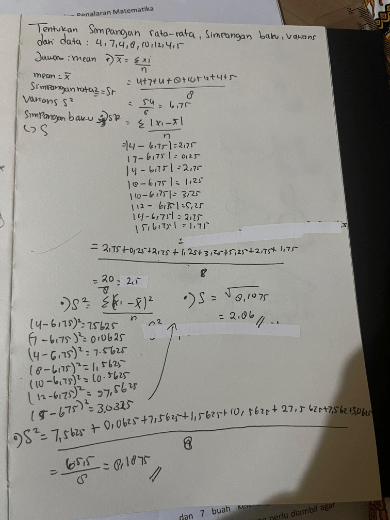 Penalaran Matematika
Tentukan Simpangan rata-rata, Simpangan baku, varians
dari data : 4, 7, 4, 8, 10, 12, 4, 5
Jawab : mean •) x̄ = Σxi
n
mean = x̄
= 4+7+4+8+10+12+4+5
8
Simpangan rata2 = Sr
Varians S²
= 54
8 = 6,75
Simpangan baku
↳ S
•) SR = Σ |xi - x̄|
n
= |4 - 6,75| = 2,75
|7 - 6,75| = 0,25
|4 - 6,75| = 2,75
|8 - 6,75| = 1,25
|10 - 6,75| = 3,25
|12 - 6,75| = 5,25
|4 - 6,75| = 2,75
|5 - 6,75| = 1,75
= 2,75 + 0,25 + 2,75 + 1,25 + 3,25 + 5,25 + 2,75 + 1,75
8
= 20
8 = 2,5
•) S² = Σ (xi - x̄)²
n
•) S = √8,1875
= 2,86
(4 - 6,75)² = 7,5625
(7 - 6,75)² = 0,0625
(4 - 6,75)² = 7,5625
(8 - 6,75)² = 1,5625
(10 - 6,75)² = 10,5625
(12 - 6,75)² = 27,5625
(5 - 6,75)² = 3,0625
•) S² = 7,5625 + 0,0625 + 7,5625 + 1,5625 + 10,5625 + 27,5625 + 7,5625 + 3,0625
8
= 65,5
8 = 8,1875
dan 7 buah
perlu diambil agar